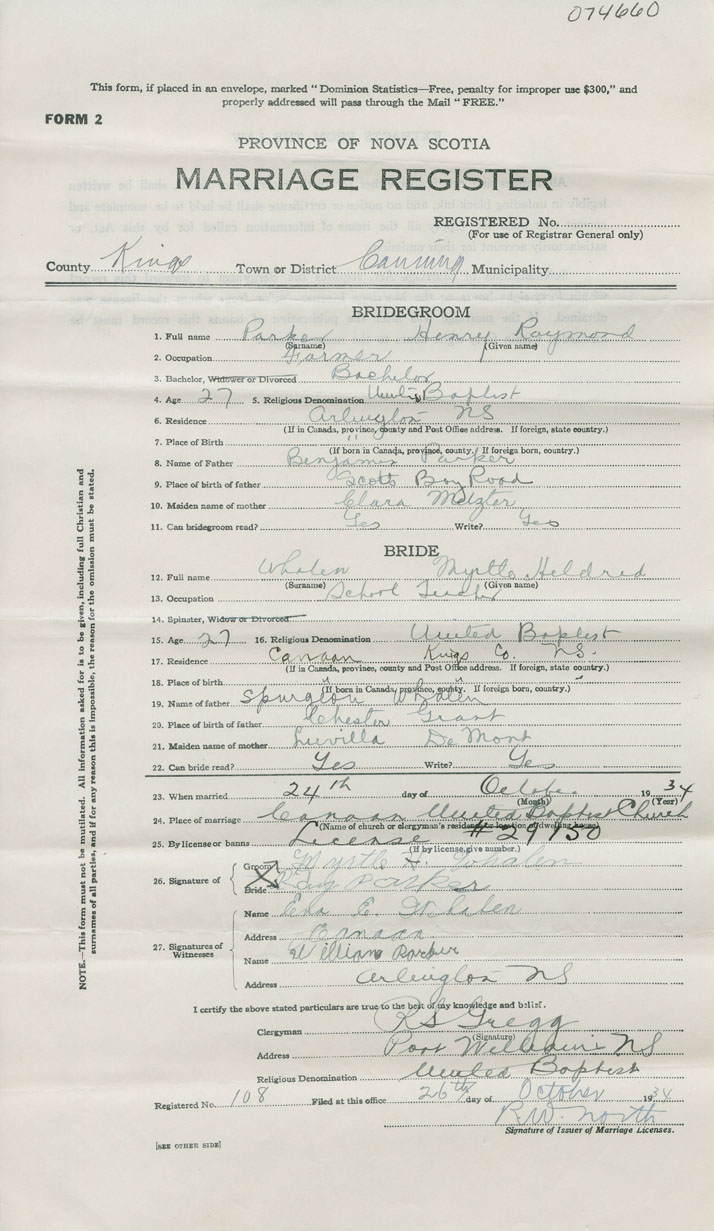 074660
This form, if placed in an envelope, marked "Dominion Statistics—Free, penalty for improper use $300," and
properly addressed will pass through the Mail "FREE."
FORM 2
PROVINCE OF NOVA SCOTIA
MARRIAGE REGISTER
REGISTERED No.
(For use of Registrar General only)
County Kings Town or District Canning Municipality
BRIDEGROOM
1. Full name Parker Henry Raymond
(Surname) (Given name)
2. Occupation Farmer
3. Bachelor, Widower or Divorced Bachelor
4. Age 27 5. Religious Denomination United Baptist
6. Residence Arlington NS
(If in Canada, province, county and Post Office address. If foreign, state country.)
7. Place of Birth " "
(If born in Canada, province, county. If foreign born, country.)
8. Name of Father Benjamin Parker
9. Place of birth of father Scotts Bay Road
10. Maiden name of mother Clara Metzler
11. Can bridegroom read? Yes Write? Yes
BRIDE
12. Full name Whalen Myrtle Heldred
(Surname) (Given name)
13. Occupation School Teacher
14. Spinster, Widow or Divorced
15. Age 27 16. Religious Denomination United Baptist
17. Residence Canaan Kings Co. NS.
(If in Canada, province, county and Post Office address. If foreign, state country.)
18. Place of birth " " "
(If born in Canada, province, county. If foreign born, country.)
19. Name of father Spurgton Whalen
20. Place of birth of father Chester Grant
21. Maiden name of mother Luvilla De Mont
22. Can bride read? Yes Write? Yes
23. When married 24th day of October 1934
(Month) (Year)
24. Place of marriage Canaan United Baptist Church
(Name of church or clergyman's residence or location of dwelling house)
25. By license or banns License #29750
(If by license, give number.)
26. Signature of Groom Myrtle H. Whalen
Bride Ray Parker
27. Signatures of Witnesses
Name Eva E Whalen
Address Canaan
Name William Parker
Address Arlington NS
I certify the above stated particulars are true to the best of my knowledge and belief.
Clergyman RS Gregg
(Signature)
Address Port Williams NS
Religious Denomination United Baptist
Registered No. 108 Filed at this office 26th day of October 1934
R.W. North
Signature of Issuer of Marriage Licenses.
[SEE OTHER SIDE]
NOTE.—This form must not be mutilated. All information asked for is to be given, including full Christian and
surnames of all parties, and if for any reason this is impossible, the reason for the omission must be stated.